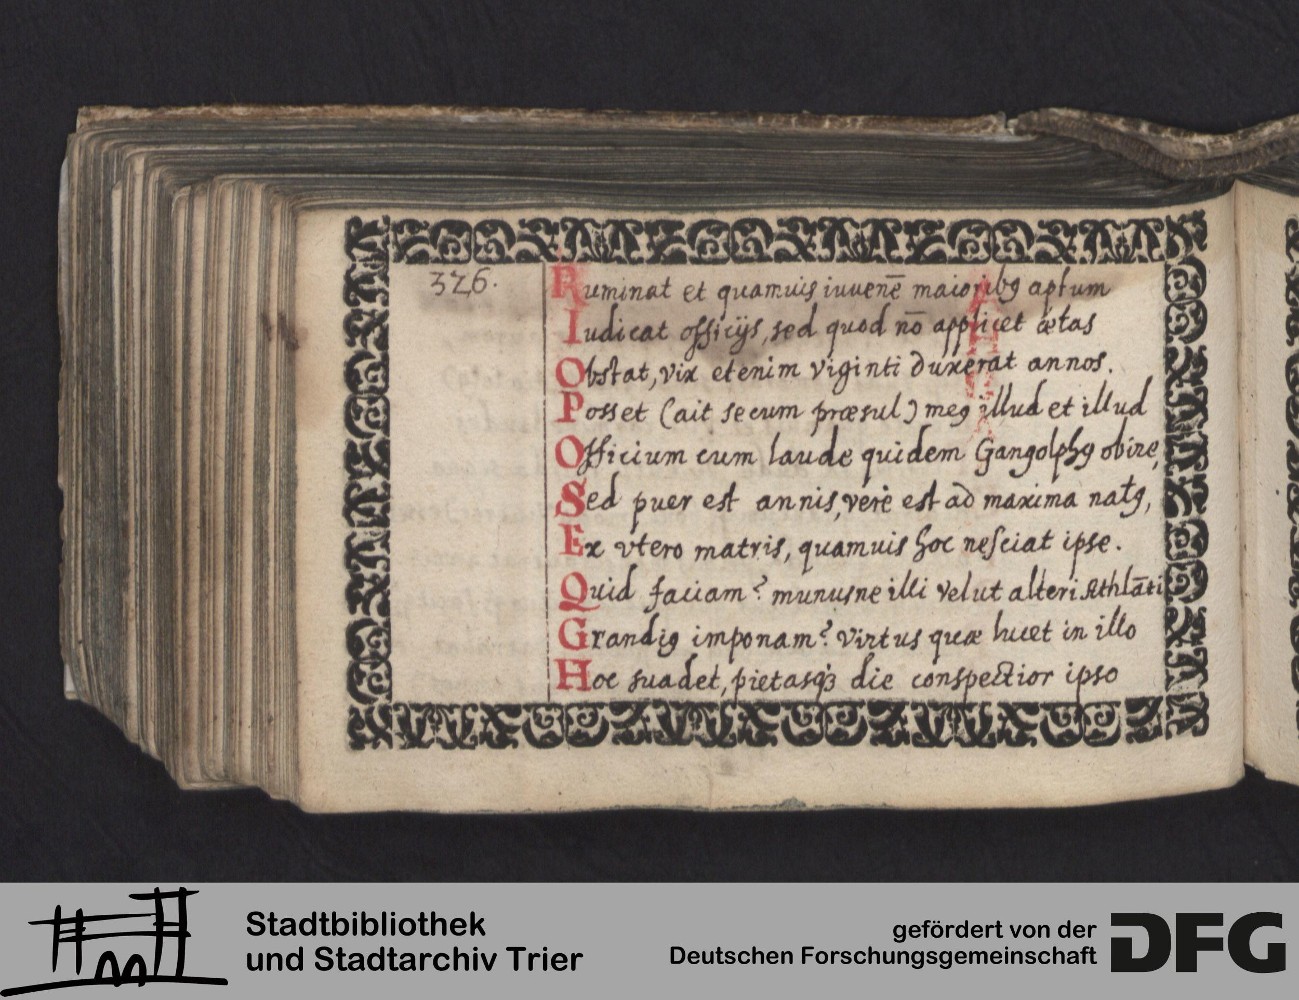 326.
Ruminat et quamuis iuuenē maioribꝰ aptum
Iudicat officijs, sed quod nō applicet ætas
Obstat, vix etenim viginti duxerat annos.
Posset (ait secum præsul) meꝰ illud et illud
Officium cum laude quidem Gangolphꝰ obire,
Sed puer est annis, verè est ad maxima natꝰ,
Ex vtero matris, quamuis hoc nesciat ipse.
Quid faciam? munusne illi velut alteri Athlāti
Grandiꝰ imponam? virtus quæ lucet in illo
Hoc suadet, pietasq́ꝫ die conspectior ipso
Stadtbibliothek
und Stadtarchiv Trier
gefördert von der
Deutschen Forschungsgemeinschaft
DFG